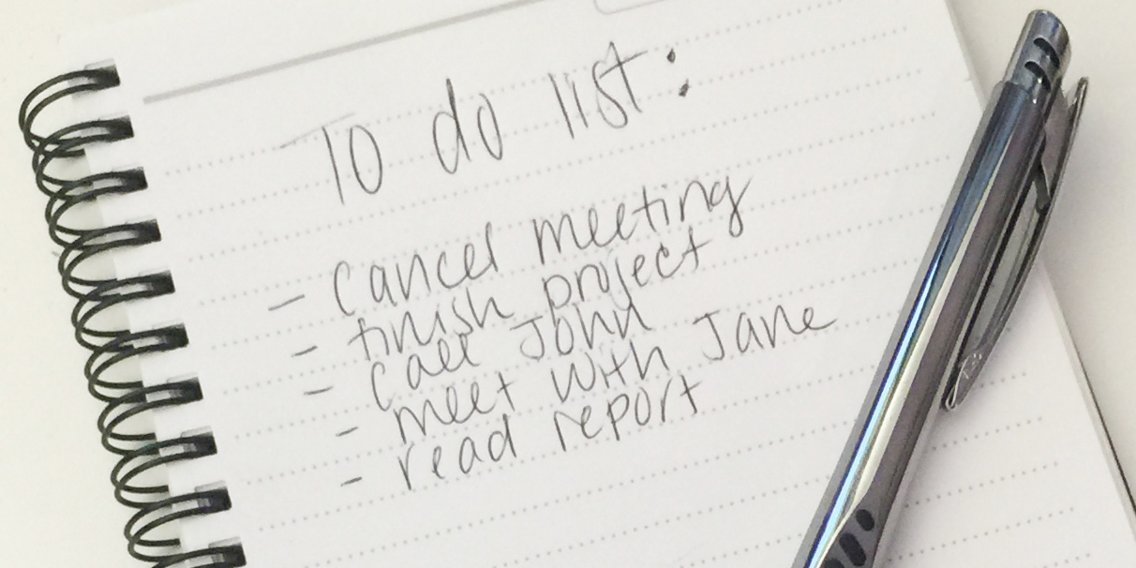 To do list:
- cancel meeting
- finish project
- call John
- meet with Jane
- read report